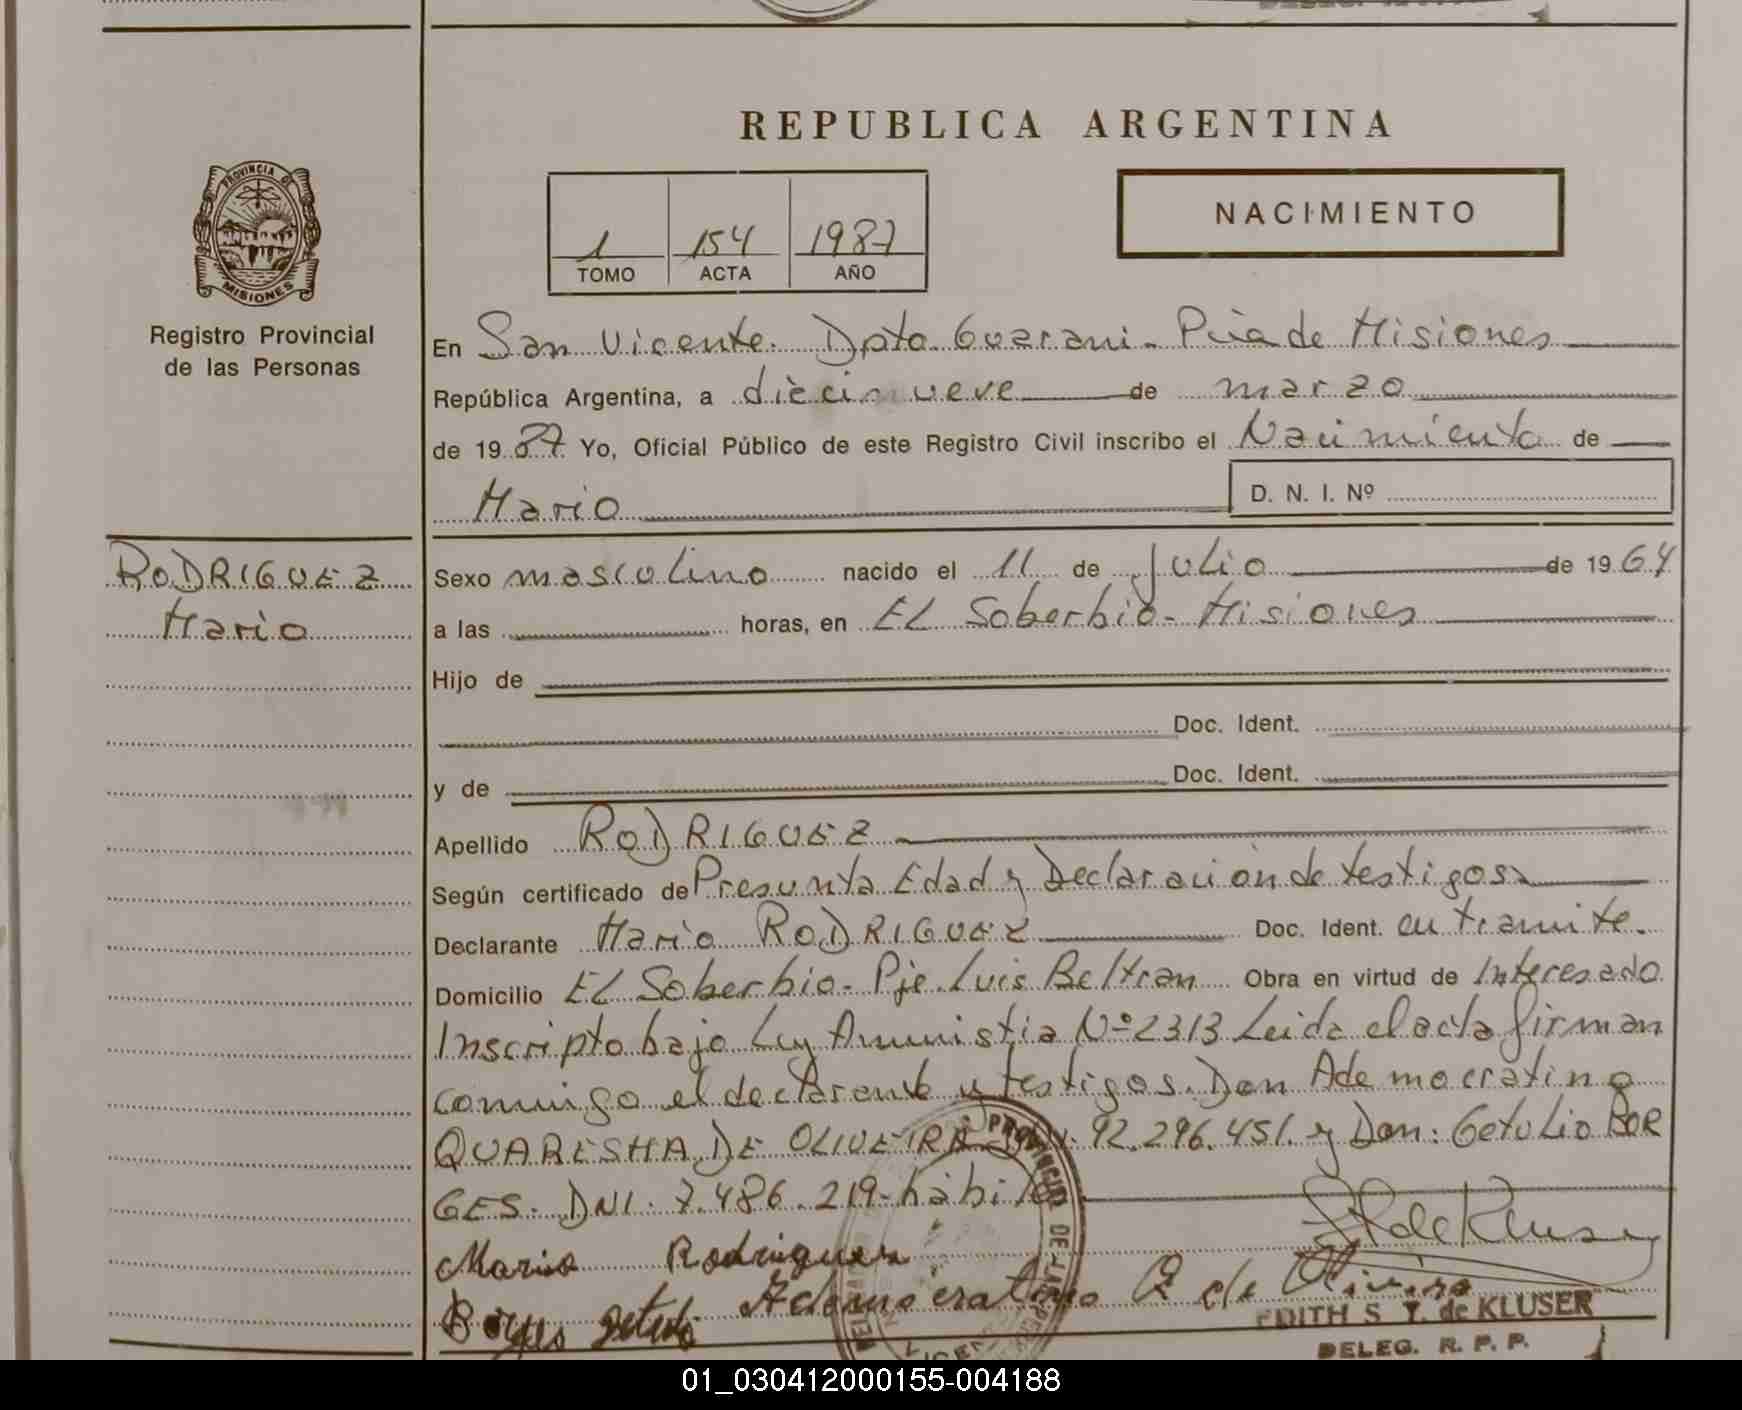 REPUBLICA ARGENTINA
PROVINCIA DE
MISIONES
Registro Provincial
de las Personas
1 154 1987
TOMO ACTA AÑO
NACIMIENTO
En San Vicente. Dpto Guarani - Pcia de Misiones
República Argentina, a diecinueve de marzo
de 19 87 Yo, Oficial Público de este Registro Civil inscribo el Nacimiento de
Mario D. N. I. Nº
RODRIGUEZ
Mario
Sexo masculino nacido el 11 de Julio de 19 64
a las horas, en EL Soberbio - Misiones
Hijo de
Doc. Ident.
y de Doc. Ident.
Apellido RODRIGUEZ
Según certificado de Presunta Edad y Declaración de testigos
Declarante Mario RODRIGUEZ Doc. Ident. en tramite.
Domicilio EL Soberbio - Pje. Luis Beltran Obra en virtud de Interesado
Inscripto bajo Ley Amnistia Nº 2313 Leida el acta firman
conmigo el declarante y testigos. Don Ademocratino
QUARESMA DE OLIVEIRA 92.296.451. y Don: Getulio BOR
GES. DNI. 7.486.219- hábiles
Mario Rodriguez
Borges Getulio Ademocratino Q de Oliveira
EDITH S. T. de KLUSER
DELEG. R. P. P.
01_030412000155-004188